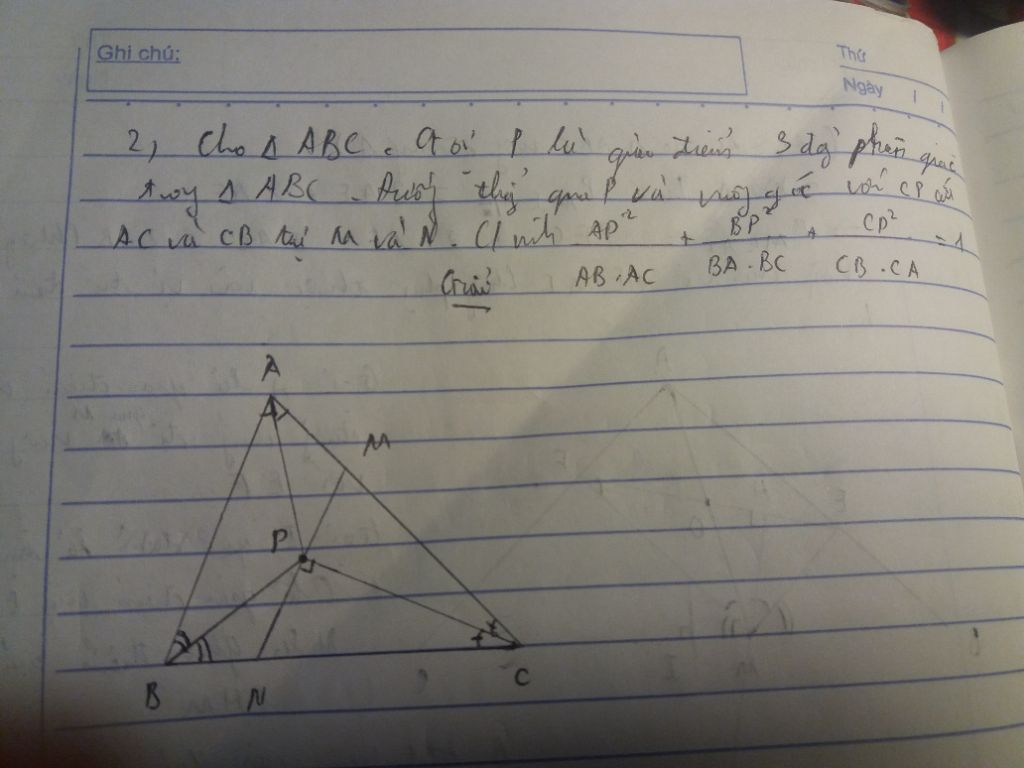 Ghi chú:
Thứ
Ngày / /
2, Cho Δ ABC. Gọi P là giao điểm 3 đg phân giác
trong Δ ABC. Đường thẳng qua P và vuông góc với CP cắt
AC và CB tại M và N. C/minh AP²/AB.AC + BP²/BA.BC + CP²/CB.CA = 1
Giải
A
M
P
B
N
C